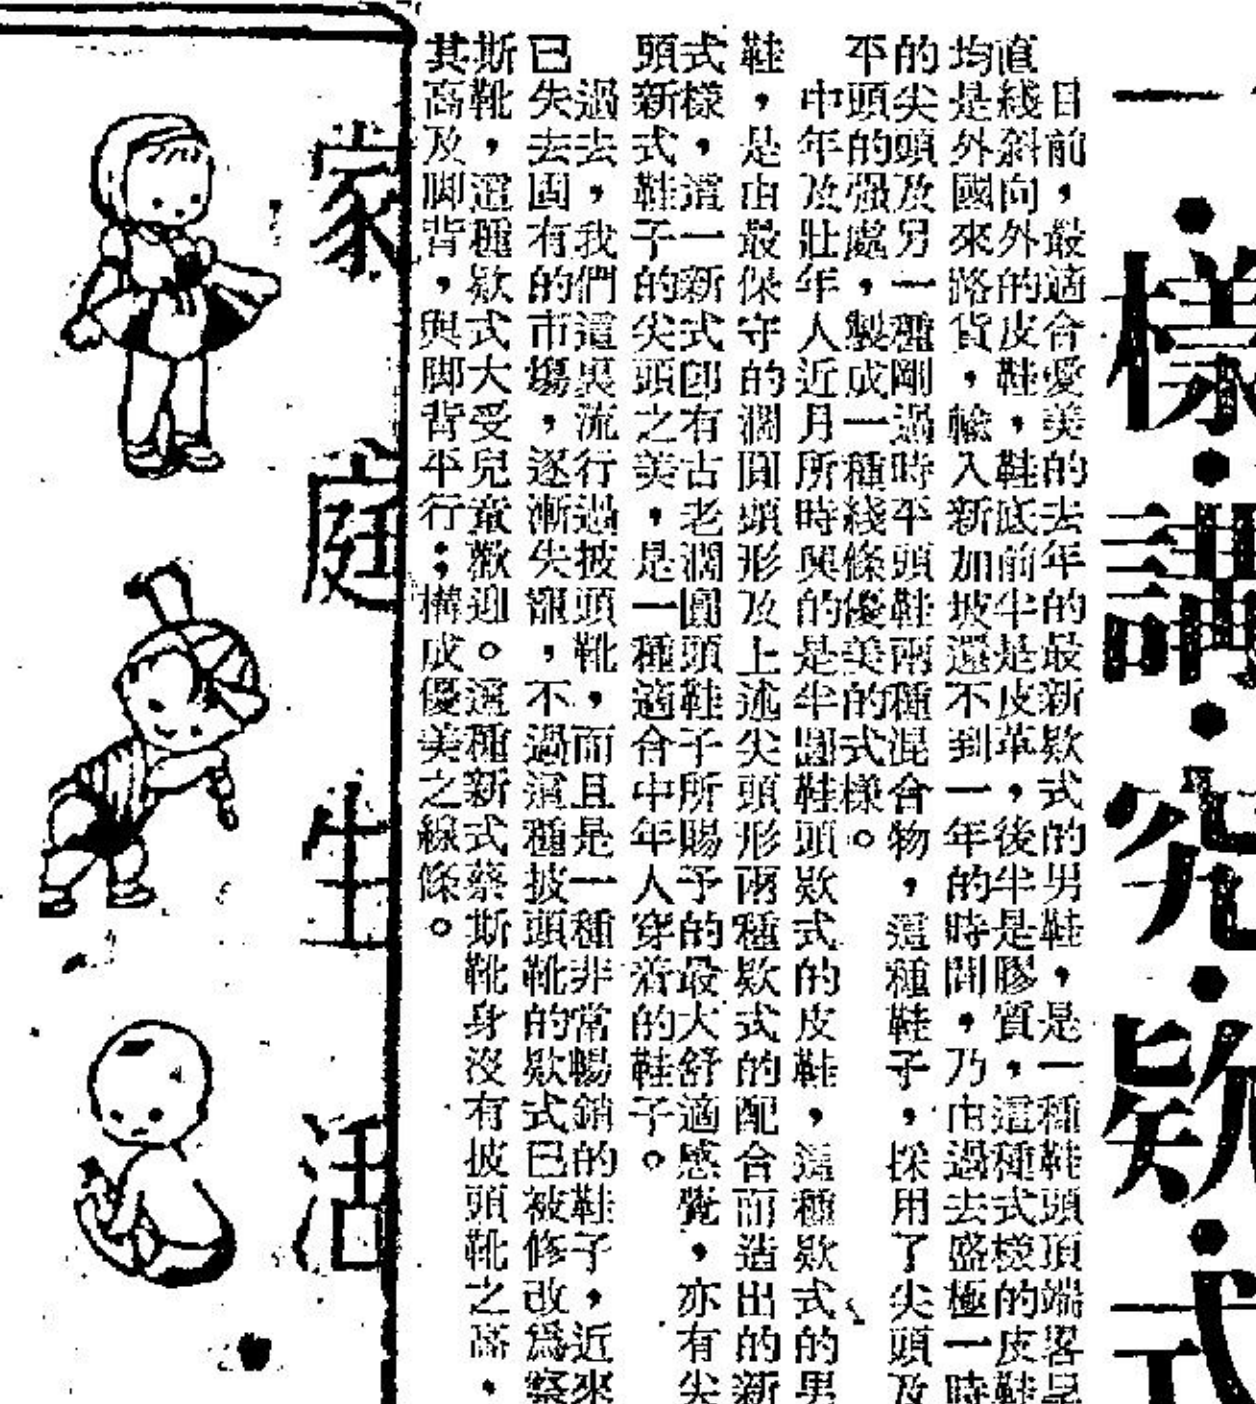 一・樣・講・究・欵・式
目前，最適合愛美的去年的最新欵式的男鞋，是一種鞋頭頂端畧呈
直綫斜向外的皮鞋，鞋底前半是皮革，後半是膠質，這種式樣的皮鞋
均是外國來路貨，輸入新加坡還不到一年的時間，乃由過去盛極一時
的尖頭及另一種剛過時平頭鞋兩種混合物，這種鞋子，採用了尖頭及
平頭的强處，製成一種綫條優美的式樣。
中年及壯年人近月所時興的是半圓鞋頭欵式的皮鞋，這種欵式的男
鞋，是由最保守的濶圓頭形及上述尖頭形兩種欵式的配合而造出的新
式樣，這一新式卽有古老濶圓頭鞋子所賜予的最大舒適感覺，亦有尖
頭新式鞋子的尖頭之美，是一種適合中年人穿着的鞋子。
過去，我們這裏流行過披頭靴，而且是一種非常暢銷的鞋子，近來
已失去固有的市塲，逐漸失寵，不過這種披頭靴的欵式已被修改爲蔡
斯靴，這種欵式大受兒童歡迎。這種新式蔡斯靴身沒有披頭靴之高，
其高及脚背，與脚背平行；構成優美之線條。
家庭生活